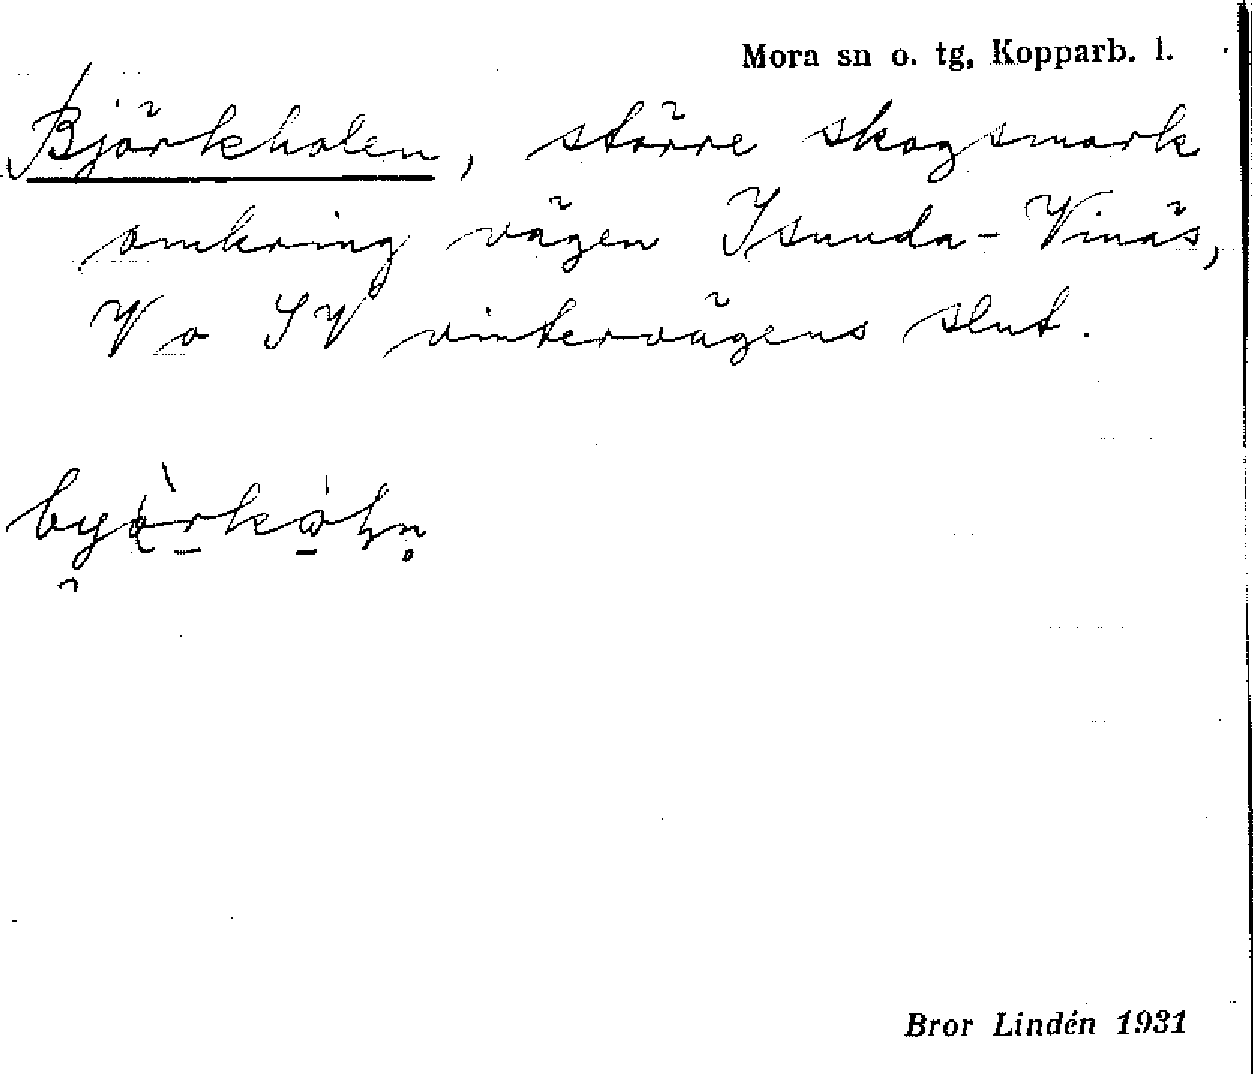 Mora sn o. tg, Kopparb. l.
Björkholen, större skogsmark
omkring vägen Isunda - Vinäs,
V o SV vintervägens slut.
Bror Lindén 1931